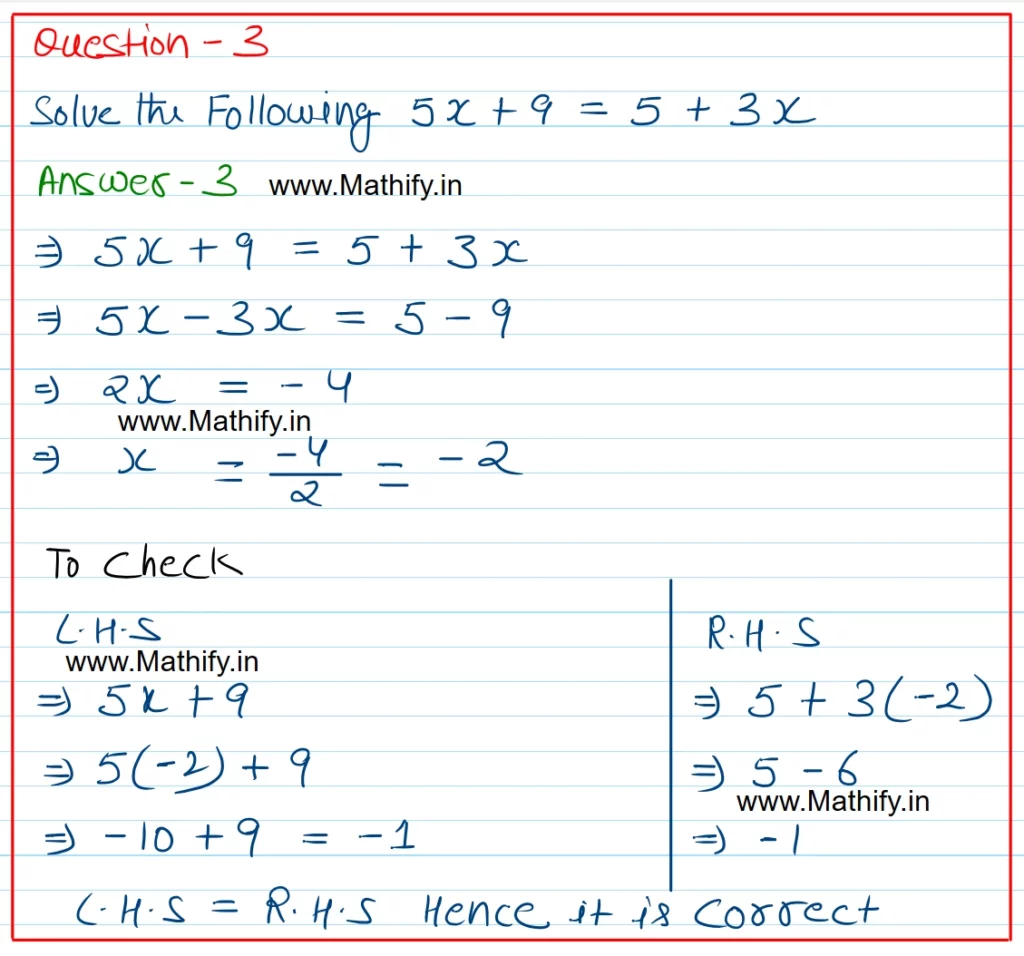 Question - 3
Solve the Following 5x + 9 = 5 + 3x
Answer - 3 www.Mathify.in
⇒ 5x + 9 = 5 + 3x
⇒ 5x - 3x = 5 - 9
⇒ 2x = - 4
www.Mathify.in
⇒ x = -4/2 = -2
To Check
L.H.S
www.Mathify.in
⇒ 5x + 9
⇒ 5(-2) + 9
⇒ -10 + 9 = -1
R.H.S
⇒ 5 + 3(-2)
⇒ 5 - 6
www.Mathify.in
⇒ -1
L.H.S = R.H.S Hence it is Correct